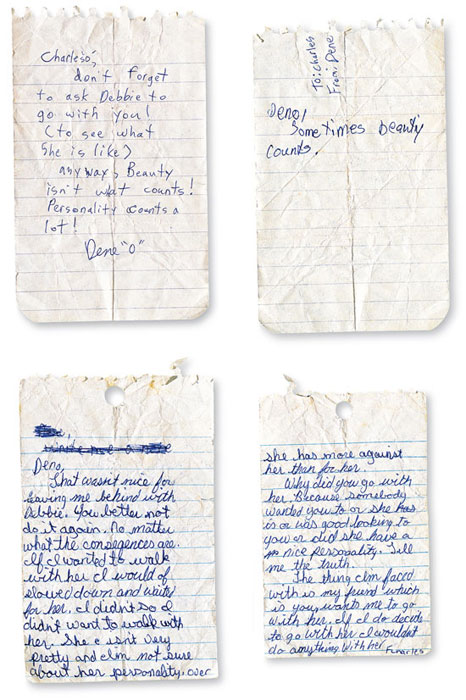 Charleso,
don't forget
to ask Debbie to
go with you!
(to see what
she is like)
anyway, Beauty
isn't what counts!
Personality counts a
lot!
Dene "O"
To: Charles
From: Dene
Deno,
Sometimes beauty
counts.
Deno,
That wasn't nice for
leaving me behind with
Debbie. You better not
do it again. No matter
what the conseqences are.
If I wanted to walk
with her I would of
slowed down and waited
for her. I didn't so I
didn't want to walk with
her. She isn't very
pretty and I'm not sure
about her personality. over
she has more against
her than for her.
Why did you go with
her. Because somebody
wanted you to or she has
is or was good looking to
you or did she have a
nice personality. Tell
me the truth.
The thing I'm faced
with is my friend which
is you, wants me to go
with her. If I do decide
to go with her I wouldn't
do anything with her